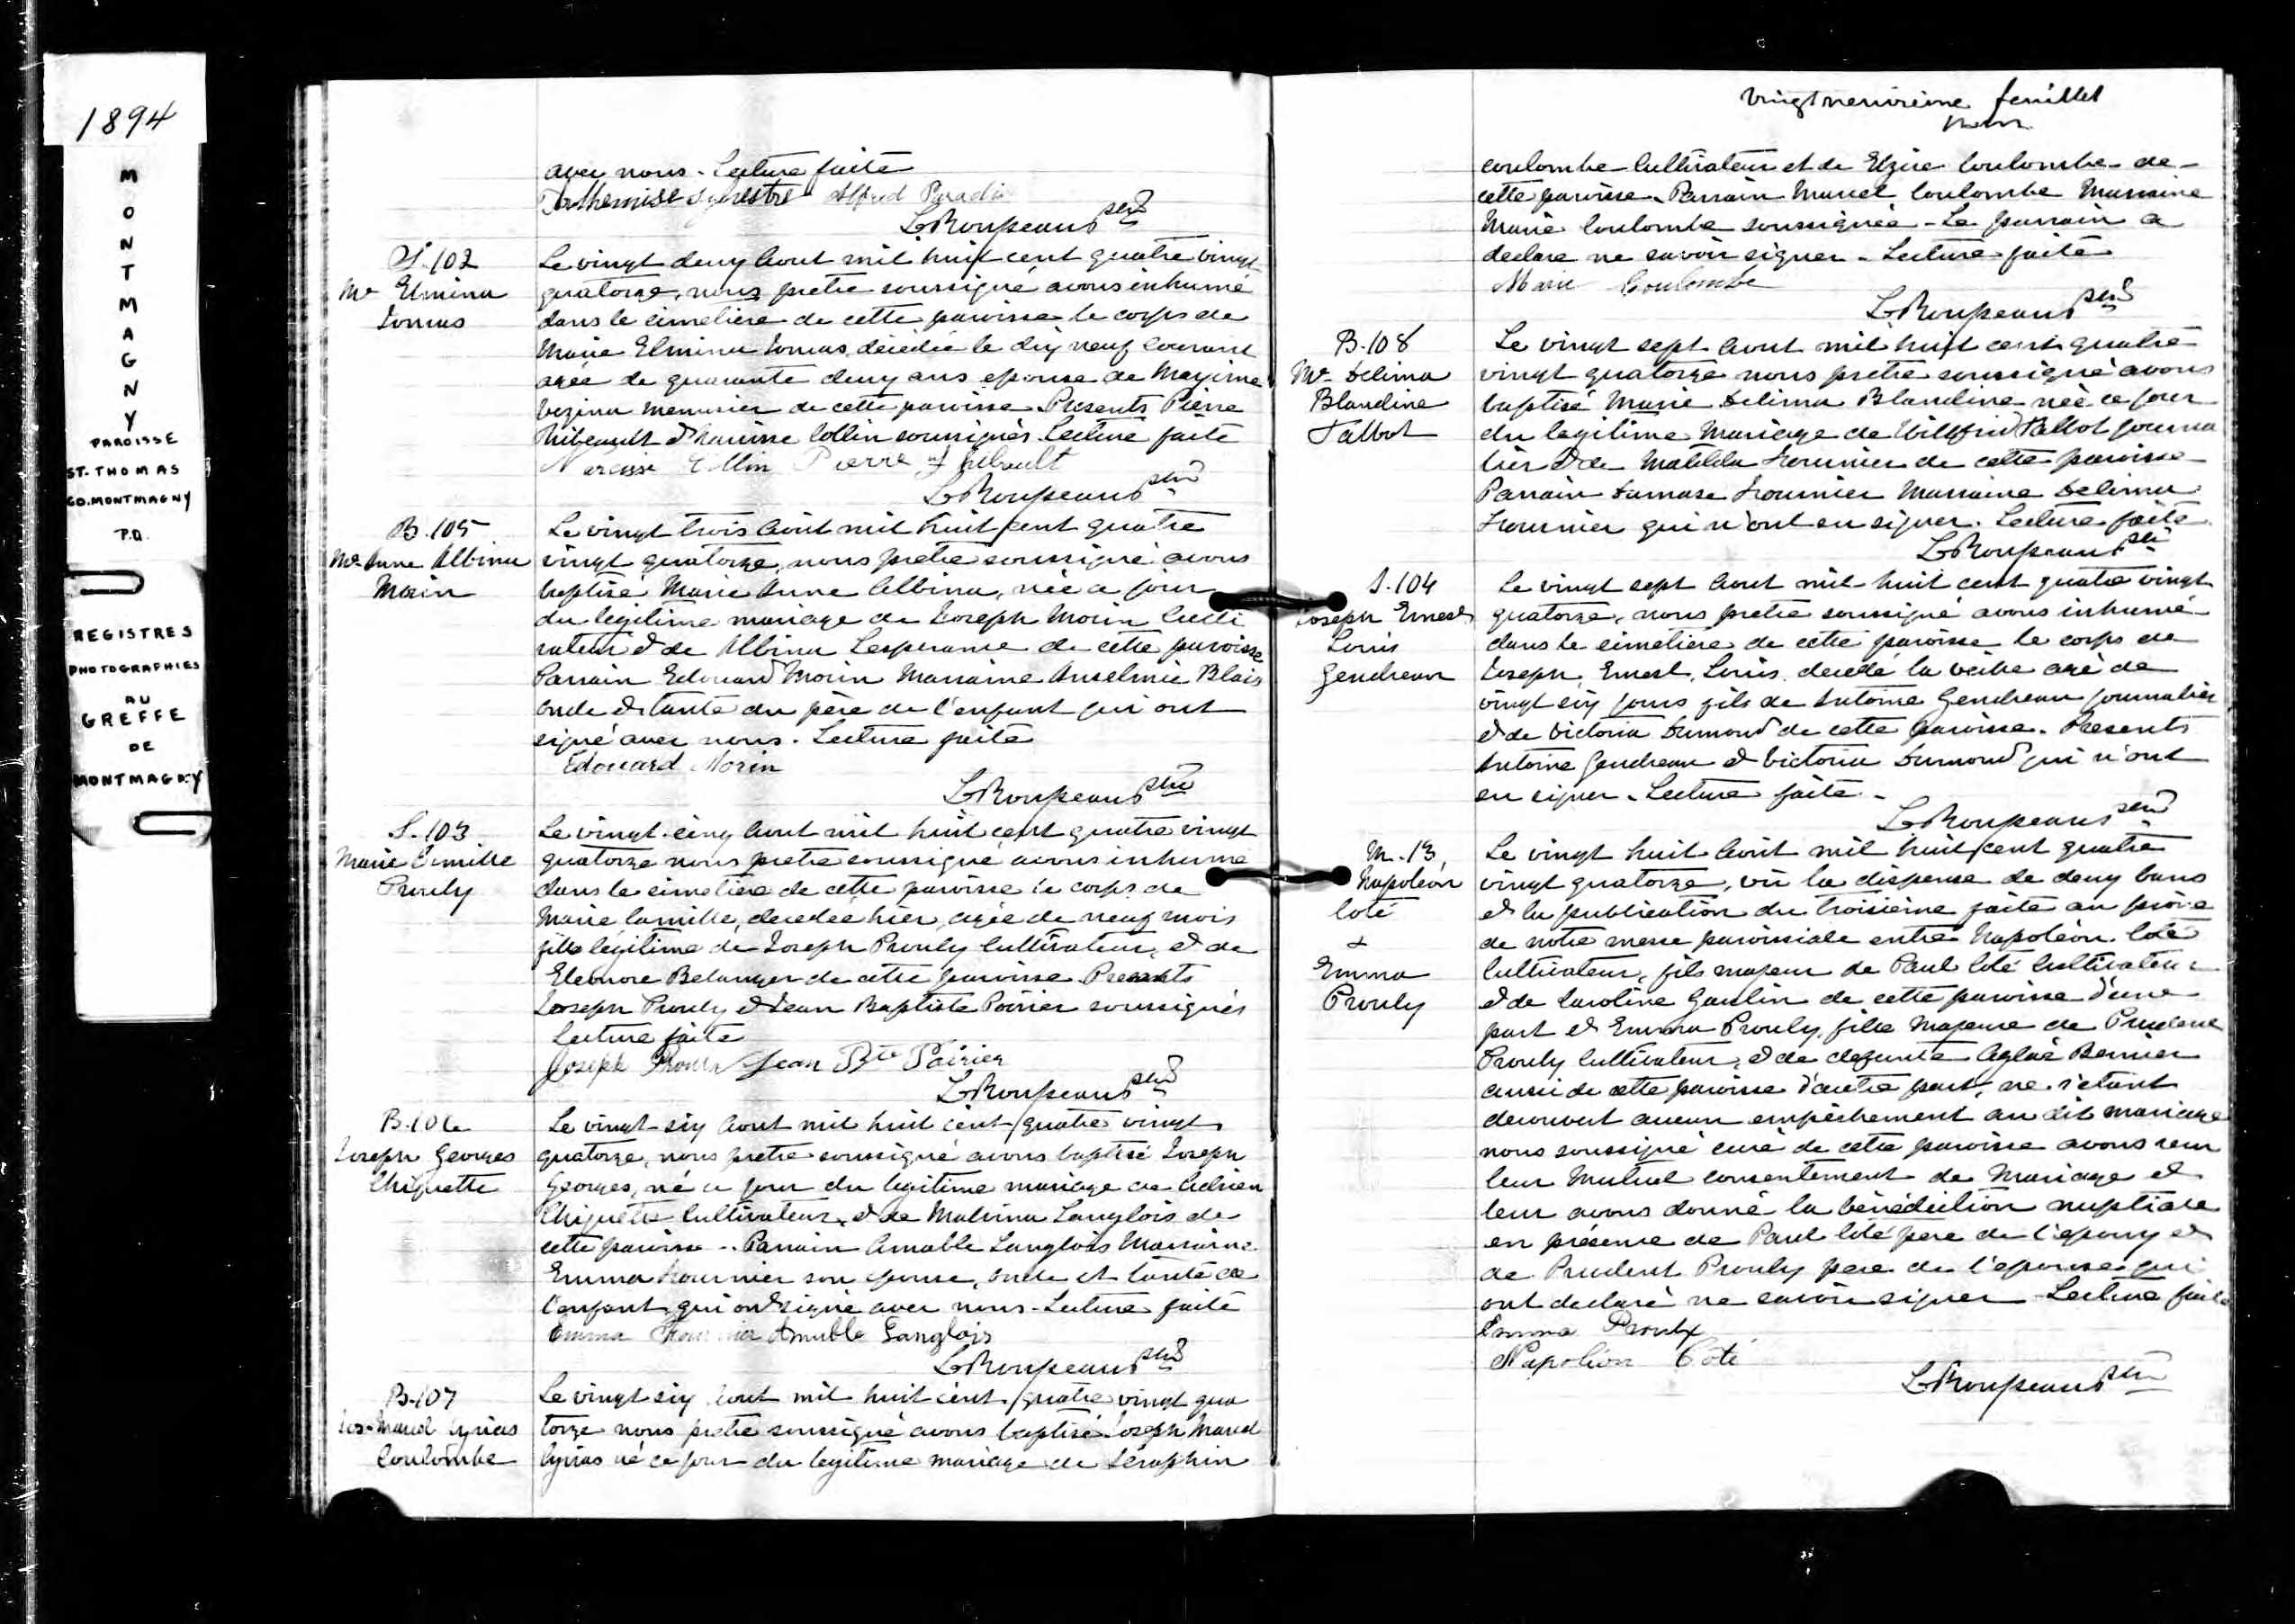 1894
MONTMAGNY
PAROISSE
ST. THOMAS
CO. MONTMAGNY
P.Q.
REGISTRES
PHOTOGRAPHIES
AU
GREFFE
DE
MONTMAGNY
avec nous. Lecture faite
Arthemise Sylvestre Alfred Paradis
ptre
S. 102
Me Elmina
Le vingt deux Aout mil huit cent quatre vingt
quatorze, nous pretre soussigné avons inhumé
dans le cimetiere de cette paroisse le corps de
Marie Elmina décédée le dix neuf courant
agée de quarante deux ans epouse de Maxime
Vezina menuisier de cette paroisse. Presents Pierre
Thibault & Narcisse Collin soussignés. Lecture faite
Narcisse Collin Pierre Thibault
ptre
B. 105
Me Anne Albina
Morin
Le vingt trois Août mil huit cent quatre
vingt quatorze, nous pretre soussigné avons
baptisé Marie Anne Albina, née ce jour
du légitime mariage de Joseph Morin Culti
vateur & de Albina Lesperance de cette paroisse
Parrain Edouard Morin Marraine Anselmie Blais
oncle & tante du père de l'enfant qui ont
signé avec nous. Lecture faite
Edouard Morin
ptre
S. 103
Marie Camille
Prouly
Le vingt-cinq Aout mil huit cent quatre vingt
quatorze nous pretre soussigné avons inhumé
dans le cimetière de cette paroisse le corps de
Marie Camille, decedée hier, agée de neuf mois
fille légitime de Joseph Prouly Cultivateur, & de
Eleonore Belanger de cette paroisse Presents
Joseph Prouly & Jean Baptiste Poirier soussignés
Lecture faite
Joseph Proulx Jean Bte Poirier
ptre
B. 106
Joseph Georges
Chiquette
Le vingt-six Aout mil huit cent quatre vingt
quatorze, nous pretre soussigné avons baptisé Joseph
Georges, né ce jour du legitime mariage de Adrien
Chiquette Cultivateur, & de Malvina Langlois de
cette paroisse. Parrain Amable Langlois Marraine
Emma Fournier son epouse, oncle et tante de
l'enfant qui ont signé avec nous. Lecture faite
Emma Fournier Amable Langlois
ptre
B. 107
Jos. Marcel Cyrias
Coulombe
Le vingt six Aout mil huit cent quatre vingt qua
torze nous pretre soussigné avons baptisé Joseph Marcel
Cyrias né ce jour du legitime mariage de Séraphin
vingt neuvième feuillet
Coulombe Cultivateur et de Elzire Coulombe de
cette paroisse. Parrain Marcel Coulombe Marraine
Marie Coulombe soussignée - Le parrain a
declare ne savoir signer. Lecture faite
Marie Coulombe
ptre
B. 108
Me Delima
Blandine
Talbot
Le vingt sept Aout mil huit cent quatre
vingt quatorze nous pretre soussigné avons
baptisé Marie Delima Blandine née ce jour
du legitime Mariage de Wilfrid Talbot journa
lier & de Matilda Fournier de cette paroisse
Parrain Damase Fournier Marraine Delima
Fournier qui n'ont su signer. Lecture faite
ptre
S. 104
Joseph Ernest
Louis
Gendreau
Le vingt sept Aout mil huit cent quatre vingt
quatorze, nous pretre soussigné avons inhumé
dans le cimetiere de cette paroisse le corps de
Joseph, Ernest, Louis, decedé la veille agé de
vingt six jours fils de Antoine Gendreau journalier
& de Victoria Dumond de cette paroisse. Presents
Antoine Gendreau & Victoria Dumond qui n'ont
su signer. Lecture faite.
ptre
M. 13
Napoléon
Coté
&
Emma
Prouly
Le vingt huit Août mil huit cent quatre
vingt quatorze, vû la dispense de deux bans
& la publication du troisième faite au prône
de notre messe paroissiale entre Napoléon Coté
Cultivateur, fils majeur de Paul Coté Cultivateur
& de Caroline Gaulin de cette paroisse d'une
part & Emma Prouly, fille Majeure de Prudent
Prouly Cultivateur, & de defunte Aglaé Bernier
aussi de cette paroisse d'autre part, ne s'etant
decouvert aucun empêchement au dit mariage
nous soussigné curé de cette paroisse avons reçu
leur Mutuel consentement de Mariage et
leur avons donné la bénédiction nuptiale
en présence de Paul Coté père de l'epoux &
de Prudent Prouly père de l'epouse qui
ont declaré ne savoir signer Lecture faite
Emma Proulx
Napoléon Coté
ptre